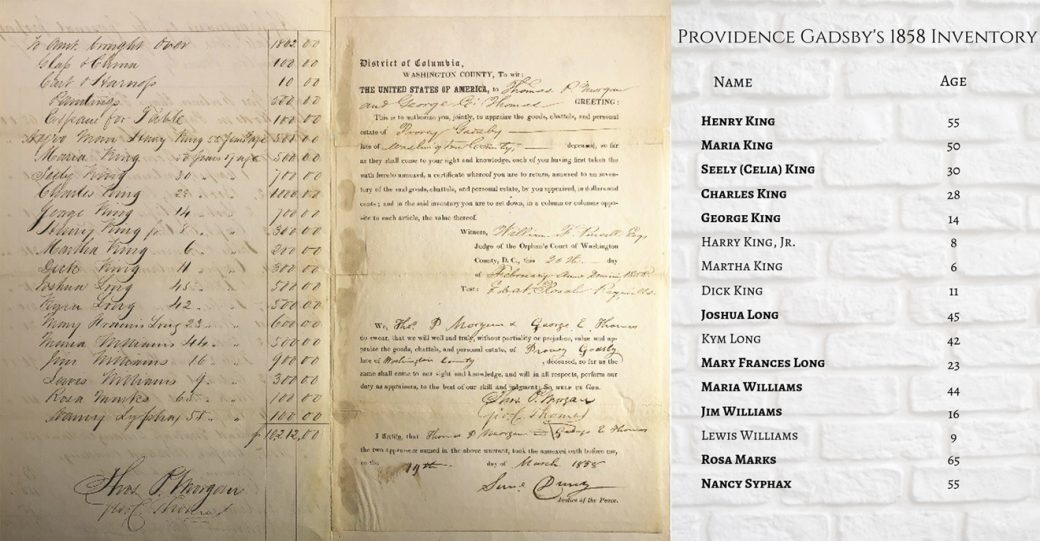 To amt. brought Over 1802.00
Glass & China 100 00
Cart & Harness 10 00
Paintings 500 00
Table 100 00
Henry King 55 years age 500 00
Maria King 50 years of age 500 00
Seely King 30 " 700 00
Charles King 28 " 1000 00
George King 14 " 700 00
Henry King jr 8 " 300 00
Martha King 6 " 200 00
Dick King 11 " 300 00
Joshua Long 45 " 500 00
Kym Long 42 " 500 00
Mary Francis Long 23 " 600 00
Maria Williams 44 " 500 00
Jim Williams 16 " 900 00
Lewis Williams 9 " 300 00
Rosa Marks 65 " 100 00
Nancy Syphax 55 " 100 00
$10212,00
Thos. P. Morgan
Geo. E. Thomas
District of Columbia,
WASHINGTON COUNTY, To wit:
THE UNITED STATES OF AMERICA, to Thomas P. Morgan
and George E. Thomas GREETING:
This is to authorize you, jointly, to appraise the goods, chattels, and personal
estate of Provey Gadsby
late of Washington County, deceased, so far
as they shall come to your sight and knowledge, each of you having first taken the
oath hereto annexed, a certificate whereof you are to return, annexed to an inven-
tory of the said goods, chattels, and personal estate, by you appraised, in dollars and
cents; and in the said inventory you are to set down, in a column or columns oppo-
site to each article, the value thereof.
Witness, William F. Purcell, Esq
Judge of the Orphan's Court of Washington
County, D. C., this 20th day
of February Anno Domini, 1858
Test: Ed. N. Roach Reg. Wills
We, Thos P Morgan & George E. Thomas
do swear, that we will well and truly, without partiality or prejudice, value and ap-
praise the goods, chattels, and personal estate, of Provey Gadsby
late of Washington County, deceased, so far as the
same shall come to our sight and knowledge, and will in all respects, perform our
duty as appraisers, to the best of our skill and judgment: So HELP US GOD.
Thos. P. Morgan
Geo. E. Thomas
I Certify, that Thomas P Morgan & George E Thomas
the two appraisers named in the above warrant, took the annexed oath before me,
on the 19th day of March 1858
Justice of the Peace.
PROVIDENCE GADSBY'S 1858 INVENTORY
NAME AGE
HENRY KING 55
MARIA KING 50
SEELY (CELIA) KING 30
CHARLES KING 28
GEORGE KING 14
HARRY KING, JR. 8
MARTHA KING 6
DICK KING 11
JOSHUA LONG 45
KYM LONG 42
MARY FRANCES LONG 23
MARIA WILLIAMS 44
JIM WILLIAMS 16
LEWIS WILLIAMS 9
ROSA MARKS 65
NANCY SYPHAX 55